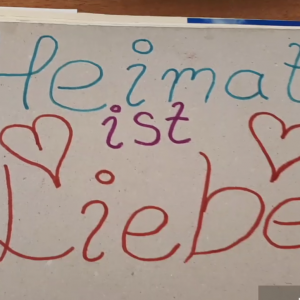 Heimat
ist
Liebe